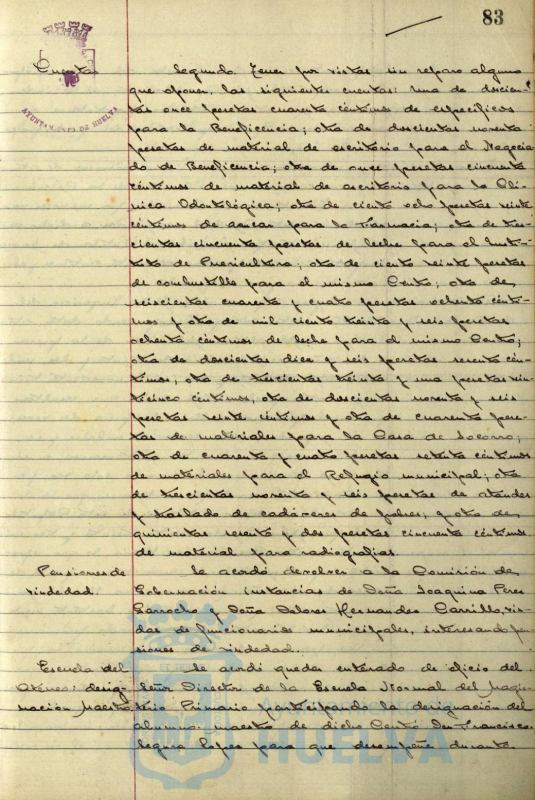 83
Cuentas
AYUNTAMIENTO DE HUELVA
Segundo. Tener por vistas sin reparo alguno
que oponer, las siguientes cuentas: una de doscien-
tas once pesetas cuarenta céntimos de específicos
para la Beneficencia; otra de doscientas noventa
pesetas de material de escritorio para el Negocia
do de Beneficencia; otra de once pesetas cincuenta
céntimos de material de escritorio para la Clí-
nica Odontológica; otra de ciento ocho pesetas veinte
céntimos de azucar para la Farmacia; otra de tres-
cientas cincuenta pesetas de leche para el Insti-
tuto de Puericultura; otra de ciento veinte pesetas
de combustible para el mismo Centro; otra de
seiscientas cuarenta y cuatro pesetas ochenta cénti-
mos y otra de mil ciento treinta y seis pesetas
ochenta céntimos de leche para el mismo Centro;
otra de doscientas diez y seis pesetas sesenta cén-
timos, otra de trescientas treinta y una pesetas vein-
ticinco céntimos, otra de doscientas noventa y seis
pesetas veinte céntimos y otra de cuarenta pese-
tas de materiales para la Casa de Socorro;
otra de cuarenta y cuatro pesetas setenta céntimos
de materiales para el Refugio municipal; otra
de trescientas noventa y seis pesetas de ataudes
y traslado de cadáveres de pobres; y otra de
quinientas sesenta y dos pesetas cincuenta céntimos
de material para radiografias.
Pensiones de
viudedad.
Se acordó devolver a la Comisión de
Gobernación instancias de Doña Joaquina Peres
Garrocho y Doña Dolores Hernandes Carrillo, viu-
das de funcionarios municipales, interesando pen
siones de viudedad.
Escuela del
Ateneo: desig-
nación Maestro
Se acordó quedar enterado de oficio del
Señor Director de la Escuela Normal del Magis-
terio Primario participando la designación del
alumno-maestro de dicho Centro Don Francisco
Segura Lopes para que desempeñe durante
HUELVA